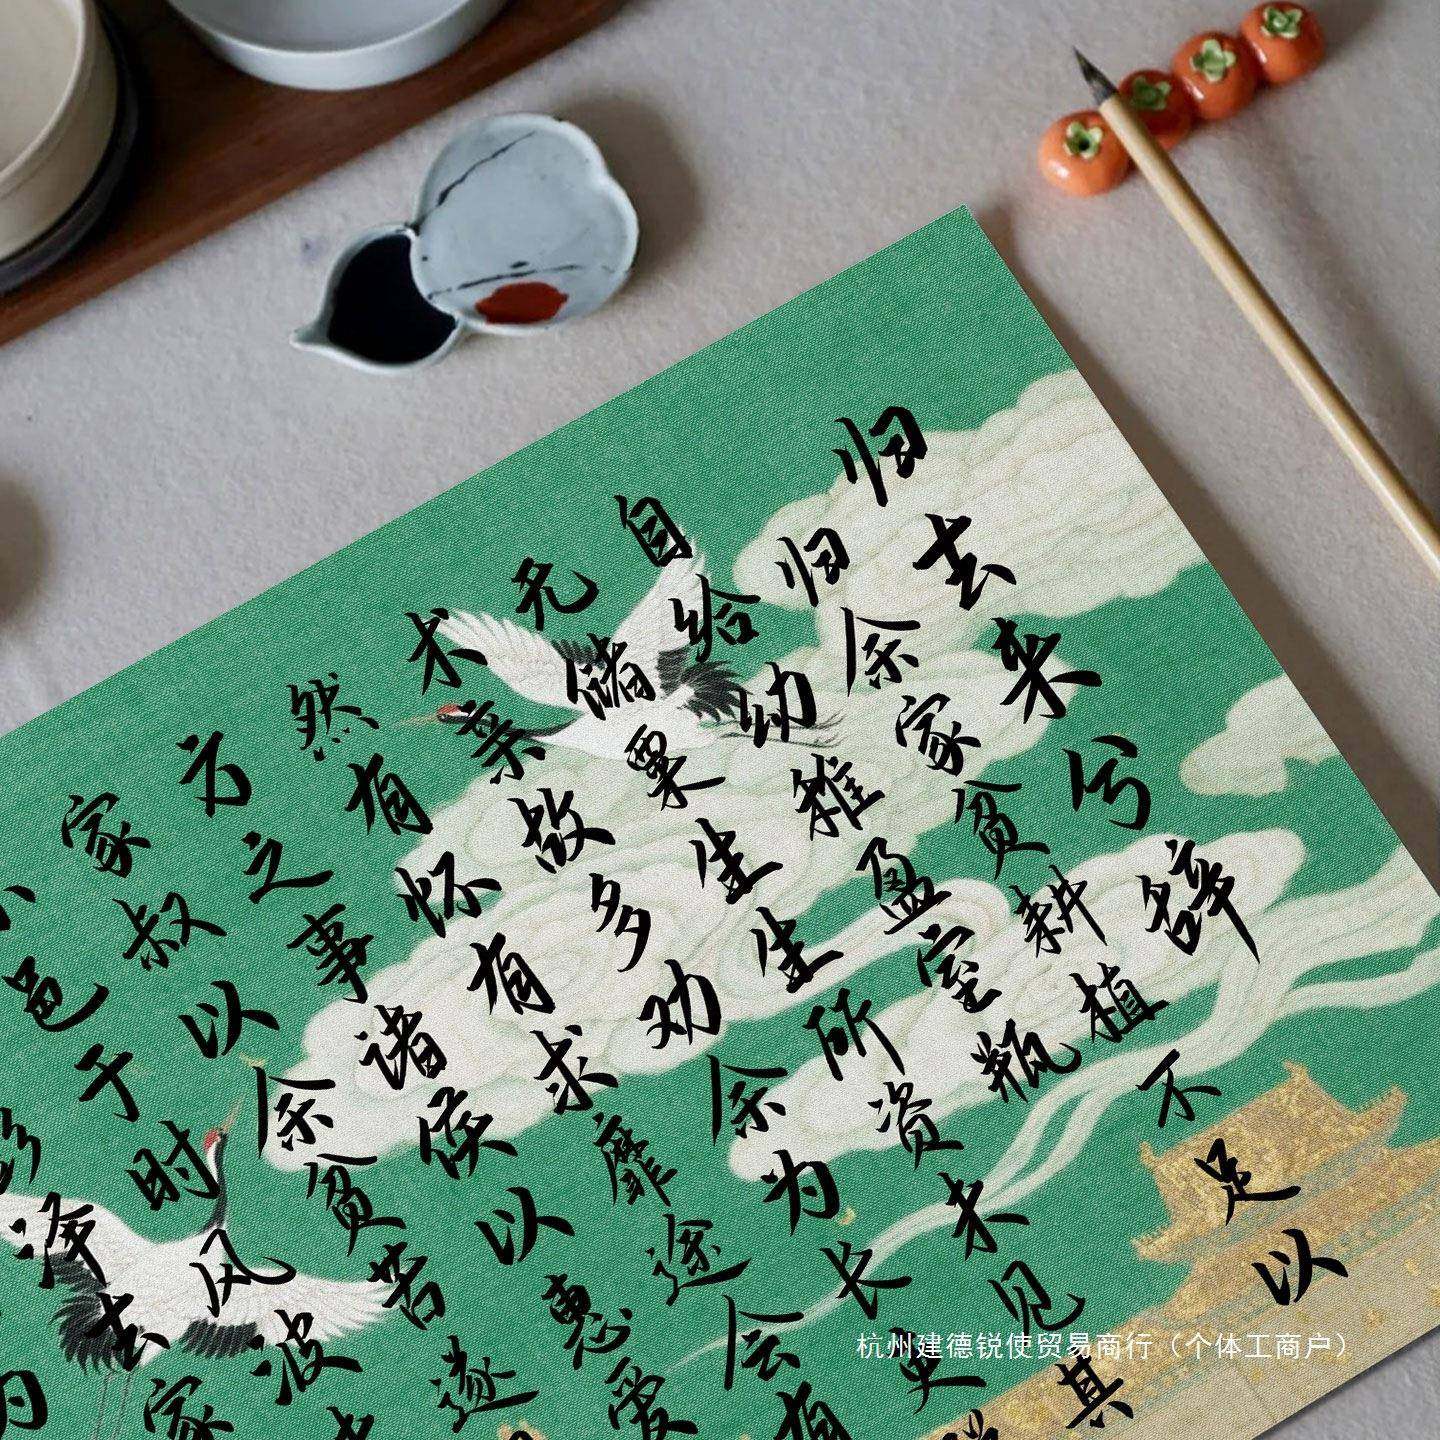 归去来兮辞
归余家贫耕植不足以
自给幼稚盈室瓶
无储粟生生所资未见其
术亲故多劝余为长吏
然有怀有求靡途会有
方之事诸侯以惠爱
家叔以余贫苦遂
邑于时风波
彭泽去家
为
杭州建德锐使贸易商行（个体工商户）